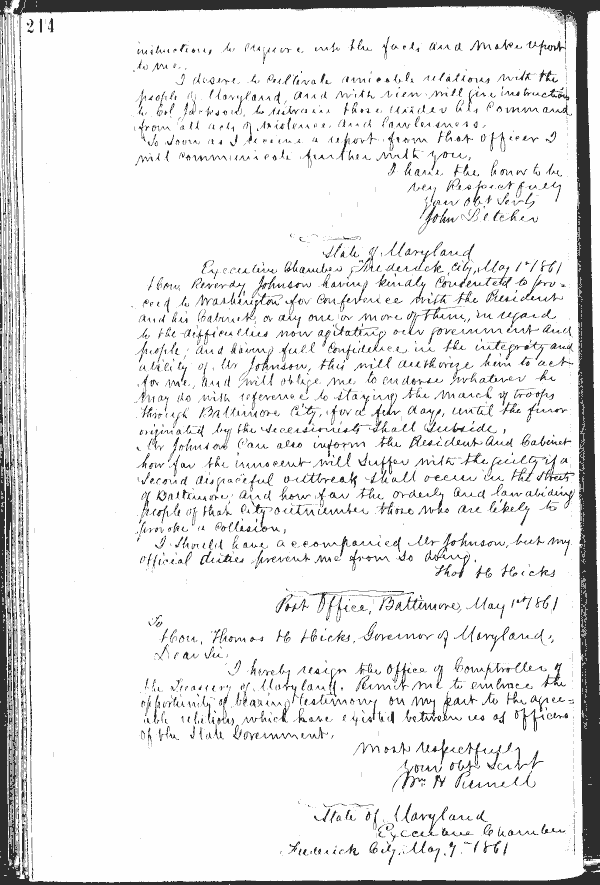 214
instructions to enquire into the facts and make report
to me.
I desire to cultivate amicable relations with the
people of Maryland, and with view will give instructions
to Col Jackson, to restrain those under his command
from all acts of violence and lawlessness.
So soon as I receive a report from that Officer I
will communicate further with you.
I have the honor to be
very Respectfully
your obt Servt
John Letcher
State of Maryland
Executive Chamber, Frederick City, May 1st 1861
Hon. Reverdy Johnson having kindly consented to pro=
ceed to Washington for conference with the President
and his Cabinet, or any one or more of them, in regard
to the difficulties now agitating our government and
people; and having full confidence in the integrity and
ability of Mr Johnson, this will authorize him to act
for me, and will oblige me to endorse whatever he
may do with reference to staying the march of troops
through Baltimore City, for a few days, until the furor
originated by the secessionists shall subside.
Mr Johnson can also inform the President and Cabinet
how far the innocent will suffer with the guilty if a
second disgraceful outbreak shall occur in the Streets
of Baltimore, and how far the orderly and law abiding
people of that City outnumber those who are likely to
provoke a collision.
I should have accompanied Mr Johnson, but my
official duties prevent me from so doing.
Thos H Hicks
Post Office, Baltimore, May 1st 1861
To
Hon. Thomas H Hicks, Governor of Maryland,
Dear Sir.
I hereby resign the Office of Comptroller of
the Treasury of Maryland. Permit me to embrace the
opportunity of bearing testimony on my part to the agree=
able relations which have existed between us as Officers
of the State Government.
Most respectfully
your obt Servt
Wm H Purnell
State of Maryland
Executive Chamber
Frederick City, May 9th 1861